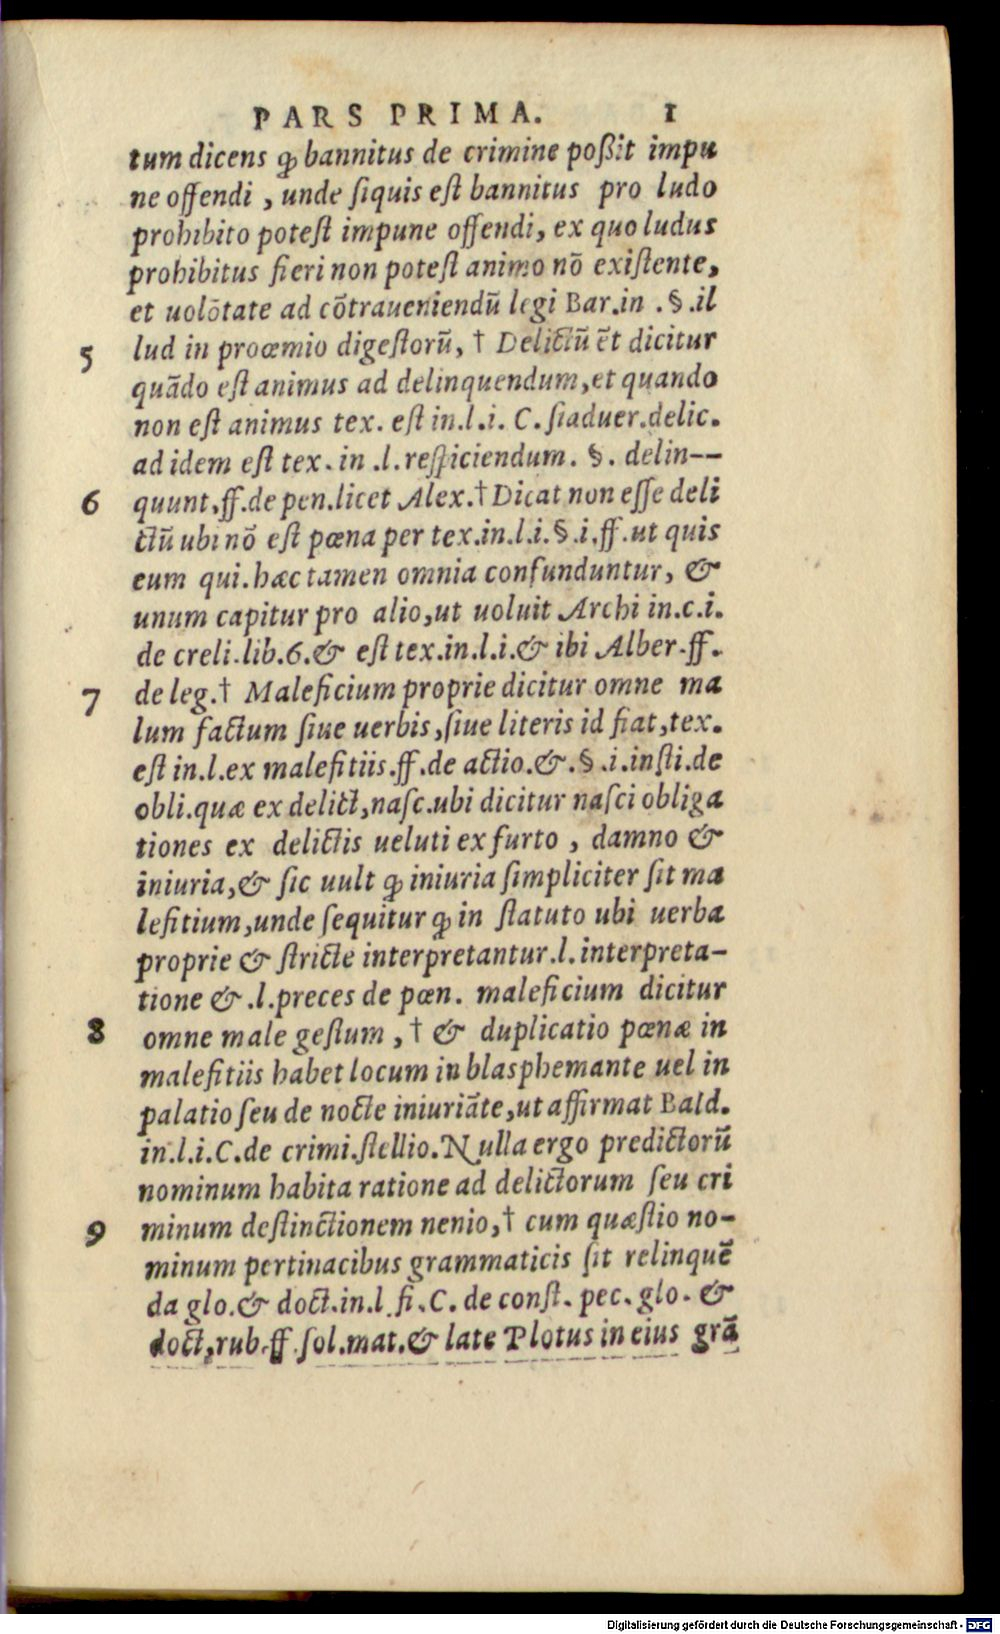 PARS PRIMA. 1
tum dicens ꝙ bannitus de crimine poßit impu
ne offendi , unde ſiquis eſt bannitus pro ludo
prohibito poteſt impune offendi, ex quo ludus
prohibitus fieri non poteſt animo nō exiſtente,
et uolōtate ad cōtraueniendū legi Bar.in .§.il
5 lud in proœmio digeſtorū, † Delictū ēt dicitur
quādo eſt animus ad delinquendum,et quando
non eſt animus tex. eſt in.l.i. C. ſiaduer.delic.
ad idem eſt tex. in .l.reſpiciendum. §. delin--
6 quunt,ff.de pen.licet Alex.† Dicat non eſſe deli
ctū ubi nō eſt pœna per tex.in.l.i.§.i.ff.ut quis
eum qui.hæc tamen omnia confunduntur, &
unum capitur pro alio,ut uoluit Archi in.c.i.
de creli.lib.6.& eſt tex.in.l.i.& ibi Alber.ff.
7 de leg.† Maleficium proprie dicitur omne ma
lum factum ſiue uerbis,ſiue literis id fiat,tex.
eſt in.l.ex malefitiis.ff.de actio.&.§.i.inſti.de
obli.quæ ex delict,naſc.ubi dicitur naſci obliga
tiones ex delictis ueluti ex furto , damno &
iniuria,& ſic uult ꝙ iniuria ſimpliciter ſit ma
lefitium,unde ſequitur ꝙ in ſtatuto ubi uerba
proprie & ſtricte interpretantur.l.interpreta-
tione & .l.preces de pœn. maleficium dicitur
8 omne male geſtum , † & duplicatio pœnæ in
malefitiis habet locum in blasphemante uel in
palatio ſeu de nocte iniuriāte,ut affirmat Bald.
in.l.i.C.de crimi.ſtellio.Nulla ergo predictorū
nominum habita ratione ad delictorum ſeu cri
9 minum deſtinctionem nenio,† cum quæſtio no-
minum pertinacibus grammaticis ſit relinquē
da glo.& doct.in.l.fi.C. de conſt. pec. glo. &
doct,rub.ff.ſol.mat.& late Plotus in eius grā
Digitalisierung gefördert durch die Deutsche Forschungsgemeinschaft - DFG